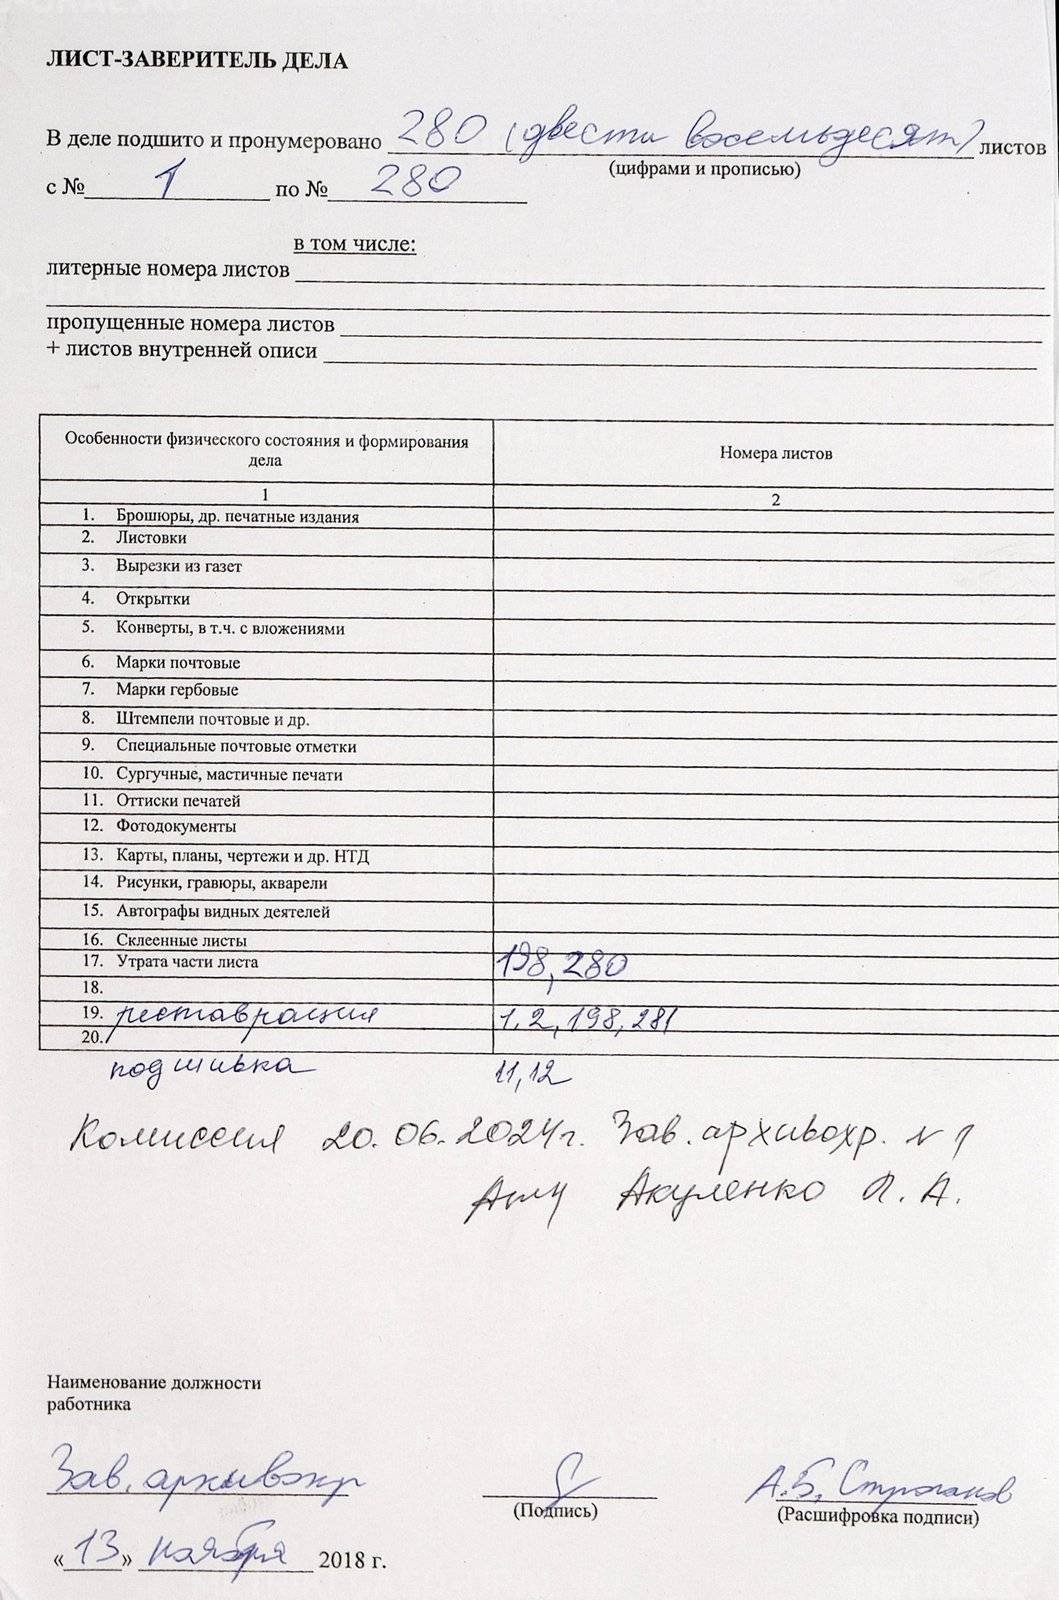 ЛИСТ-ЗАВЕРИТЕЛЬ ДЕЛА
В деле подшито и пронумеровано 280 (двести восемьдесят) листов
(цифрами и прописью)
с № 1 по № 280
в том числе:
литерные номера листов
пропущенные номера листов
+ листов внутренней описи
Особенности физического состояния и формирования дела Номера листов
1 2
1. Брошюры, др. печатные издания
2. Листовки
3. Вырезки из газет
4. Открытки
5. Конверты, в т.ч. с вложениями
6. Марки почтовые
7. Марки гербовые
8. Штемпели почтовые и др.
9. Специальные почтовые отметки
10. Сургучные, мастичные печати
11. Оттиски печатей
12. Фотодокументы
13. Карты, планы, чертежи и др. НТД
14. Рисунки, гравюры, акварели
15. Автографы видных деятелей
16. Склеенные листы
17. Утрата части листа 198, 280
18.
19. реставрация 1, 2, 198, 281
20.
подшивка 11, 12
Комиссия 20.06.2024г. Зав. архивохр. №1
Акуленко Л. А.
Наименование должности
работника
Зав. архивохр А.Б. Строганов
(Подпись) (Расшифровка подписи)
«13» ноября 2018 г.